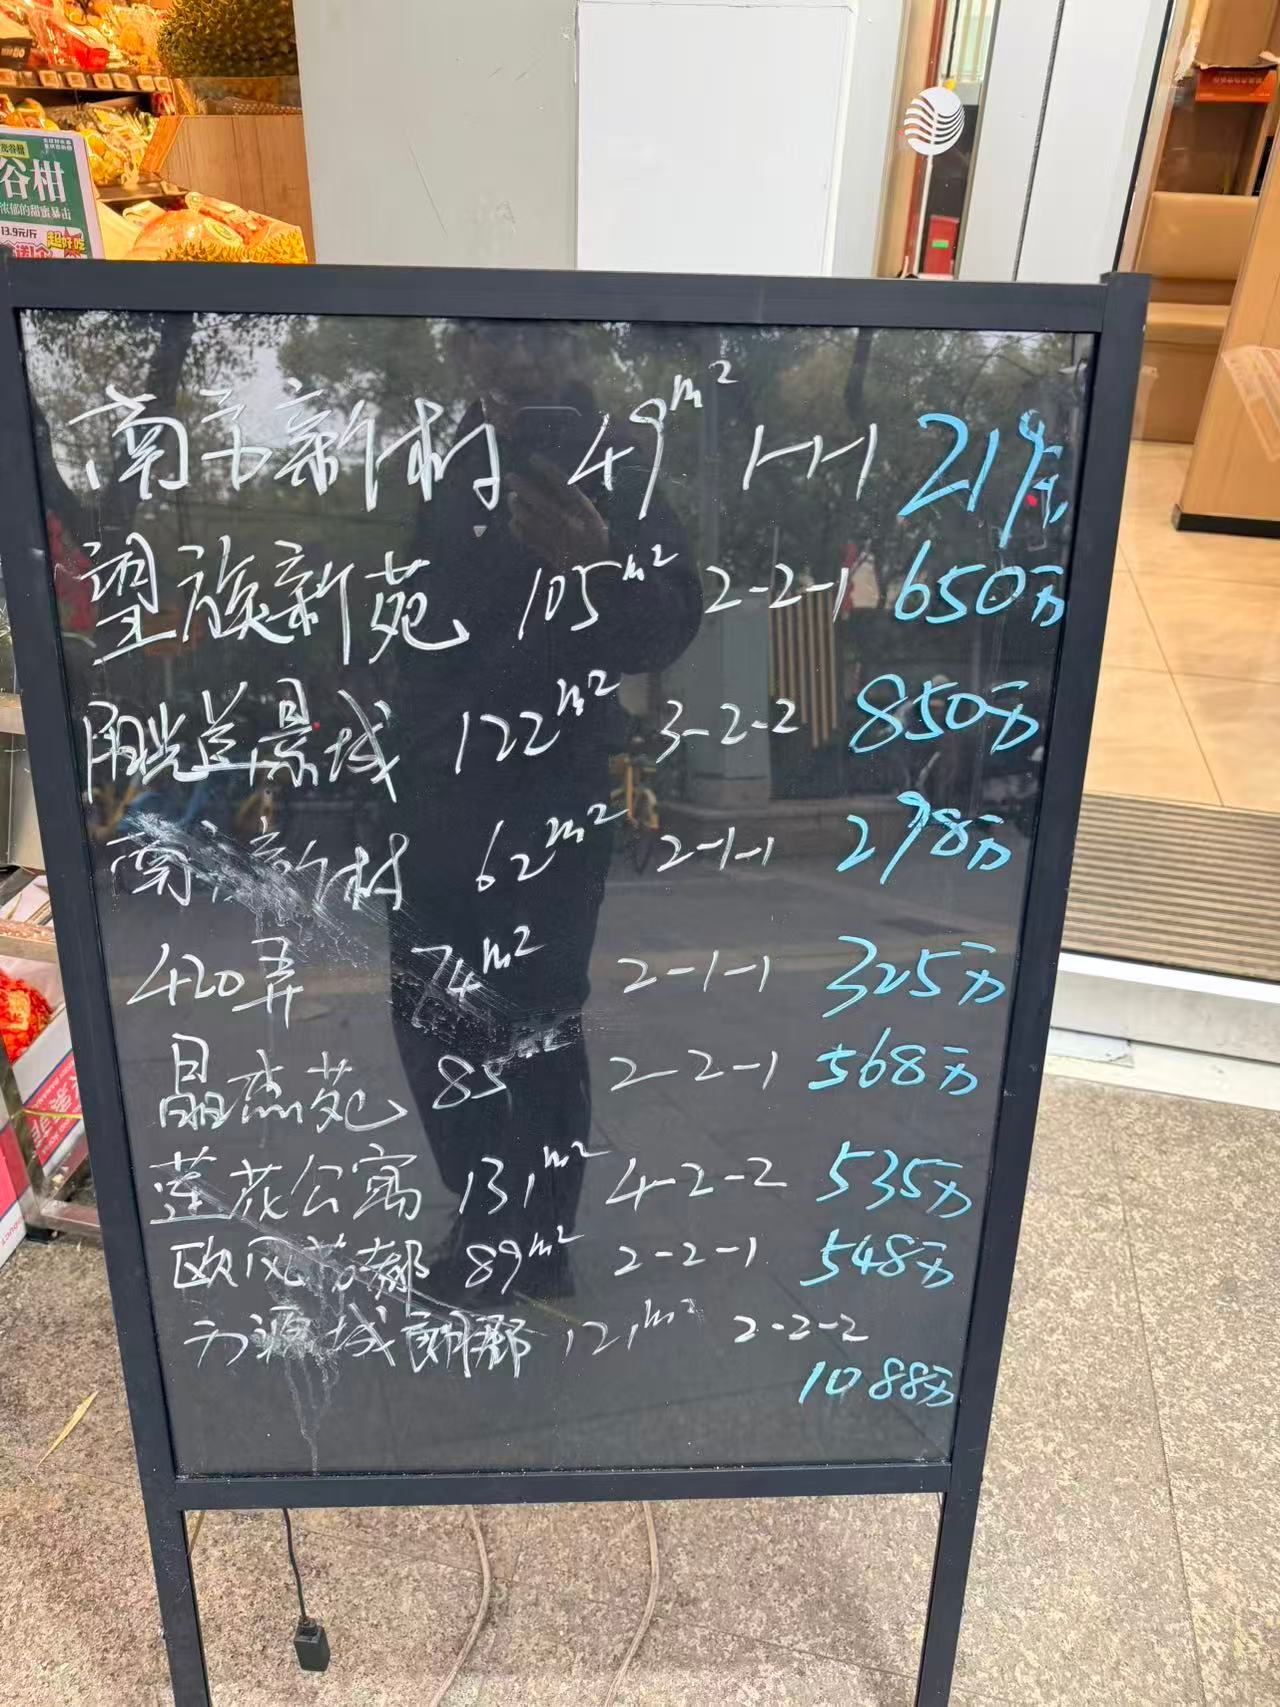 谷柑
浓郁的甜蜜暴击
13.9元/斤
超好吃
南方新村 49m² 1-1-1 219万
望族新苑 105m² 2-2-1 650万
阳光道景城 122m² 3-2-2 850万
南方新村 62m² 2-1-1 298万
420弄 74m² 2-1-1 325万
晶杰苑 85 2-2-1 568万
莲花公寓 131m² 4-2-2 535万
欧风花都 89m² 2-2-1 548万
万源城朗郡 121m² 2-2-2
1088万